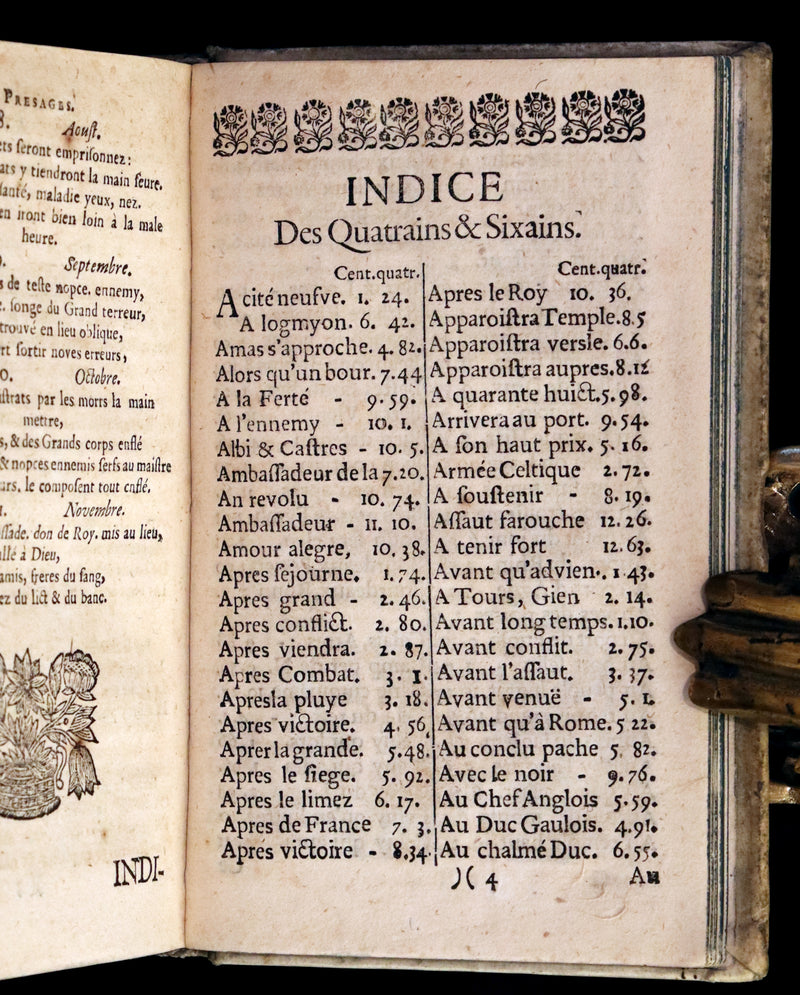 PRESAGES.
8.
Aouſt.
ts ſeront empriſonnez:
ats y tiendront la main ſeure,
ſanté, maladie yeux, nez.
en iront bien loin à la male
heure.
Septembre.
s de teſte nopce. ennemy,
ſonge du Grand terreur,
trouvé en lieu oblique,
rt ſortir noves erreurs,
0.
Octobre.
iſtrats par les morts la main
mettre,
s, & des Grands corps enflé
& nopces ennemis ſerfs au maiſtre
urs, le compoſent tout enflé.
1.
Novembre.
ſſade, don de Roy. mis au lieu,
llé à Dieu,
amis, freres du ſang,
ez du lict & du banc.
INDI-
INDICE
Des Quatrains & Sixains.
Cent.quatr.
A cité neufve. 1. 24.
A logmyon. 6. 42.
Amas s'approche. 4. 82.
Alors qu'un bour. 7.44
A la Ferté - 9.59.
A l'ennemy - 10. 1.
Albi & Caſtres - 10. 5.
Ambaſſadeur de la 7.20.
An revolu - 10. 74.
Ambaſſadeur - 11. 10.
Amour alegre, 10.38.
Apres ſejourne. 1.74.
Apres grand - 2.46.
Apres conflict. 2. 80.
Apres viendra. 2. 87.
Apres Combat. 3. 1.
Apresla pluye 3. 18.
Apres victoire. 4. 56.
Aprer la grande. 5.48.
Apres le ſiege. 5. 92.
Apres le limez 6. 17.
Apres de France 7. 3.
Aprés victoire - 8.34.
Cent.quatr.
Apres le Roy 10. 36.
Apparoiſtra Temple.8.5
Apparoiſtra verſle. 6.6.
Apparoiſtra aupres.8.12
A quarante huict.5.98.
Arrivera au port. 9.54.
A ſon haut prix. 5. 16.
Armée Celtique 2.72.
A ſouſtenir - 8.19.
Aſſaut farouche 12.26.
A tenir fort 12.63.
Avant qu'advien.. 1.43.
A Tours, Gien 2. 14.
Avant long temps. 1.10.
Avant conflit. 2.75.
Avant l'aſſaut. 3. 37.
Avant venuë - 5. 1.
Avant qu'à Rome. 5 22.
Au conclu pache 5. 82.
Avec le noir - 9.76.
Au Chef Anglois 5.59.
Au Duc Gaulois. 4.91.
Au chalmé Duc. 6.55.
)( 4
Au